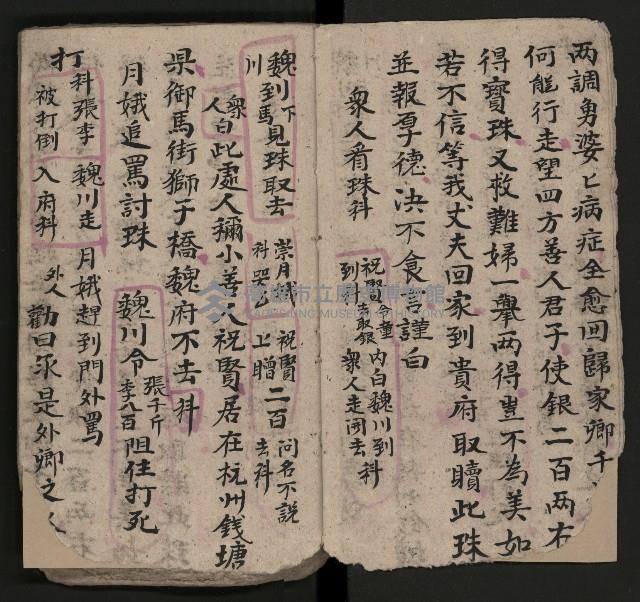 两調勇婆匕病症全愈回歸家鄉千
何能行走望四方善人君子使銀二百两右
得寶珠又救難婦一舉两得豈不為美如
若不信等我丈夫回家到貴府取贖此珠
並報厚德決不食言謹白
衆人看珠科
祝賢令童內白魏川到
到府取銀衆人走闲去科
魏到下馬見珠取去
川
崇月娥祝賢二百問名不說
科哭上贈去科
衆人白此處人稱小善人祝賢居在杭州錢塘
県御馬街獅子橋魏府不去科
月娥追罵討珠
魏川令張千斤李八百阻住打死
打科張李魏川走月娥趕到門外罵
被打倒入府科外人勸曰你是外鄉之人
高雄市立歷史博物館
KAOHSIUNG MUSEUM OF HISTORY